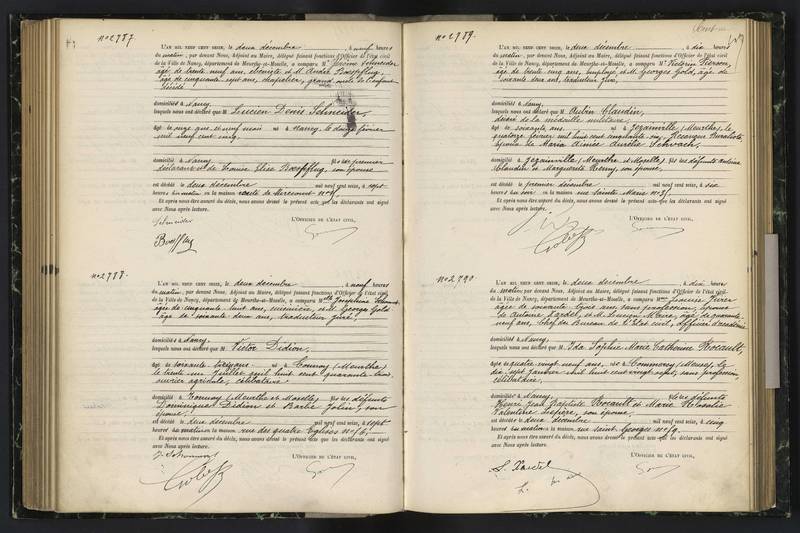 n° 2787.
L'AN MIL NEUF CENT SEIZE, le deux décembre, à neuf heures
du matin, par devant Nous, Adjoint au Maire, délégué faisant fonctions d'Officier de l'état civil
de la Ville de Nancy, département de Meurthe-et-Moselle, a comparu M. Schneider
âgé de trente neuf ans, ébéniste et M. André Boeffflug,
âgé de cinquante sept ans, chapelier, grand oncle de l'enfant
décédé
domiciliés à Nancy
lesquels nous ont déclaré que M. Lucien Denis Schneider,
âgé de onze ans et neuf mois né à Nancy, le douze février
mil neuf cent cinq
domicilié à Nancy fils du premier
déclarant et de Louise Elise Boeffflug, son épouse
est décédé le deux décembre mil neuf cent seize, à sept
heures du matin en la maison route de Mirecourt n°
Et après nous être assuré du décès, nous avons dressé le présent acte que les déclarants ont signé
avec Nous après lecture.
L'OFFICIER DE L'ÉTAT CIVIL,
Schneider
n° 2788.
L'AN MIL NEUF CENT SEIZE, le deux décembre, à neuf heures
du matin, par devant Nous, Adjoint au Maire, délégué faisant fonctions d'Officier de l'état civil
de la Ville de Nancy, département de Meurthe-et-Moselle, a comparu Mlle Joséphine
âgée de cinquante huit ans, infirmière, et M. Georges Gold
âgé de soixante deux ans, traducteur juré,
domiciliés à Nancy
lesquels nous ont déclaré que M. Victor Didion,
âgé de soixante treize ans né à (Meurthe)
le trente un Juillet mil huit cent quarante trois
ouvrier agricole, célibataire
domicilié à (Meurthe et Moselle) fils des défunts
Dominique Didion et Barbe Jolin, son
épouse
est décédé le deux décembre mil neuf cent seize, à sept
heures du matin en la maison rue des quatre Eglises n°
Et après nous être assuré du décès, nous avons dressé le présent acte que les déclarants ont signé
avec Nous après lecture.
L'OFFICIER DE L'ÉTAT CIVIL,
n° 2789.
L'AN MIL NEUF CENT SEIZE, le deux décembre, à dix heures
du matin, par devant Nous, Adjoint au Maire, délégué faisant fonctions d'Officier de l'état civil
de la Ville de Nancy, département de Meurthe-et-Moselle, a comparu M. Victorin Pierson,
âgé de trente cinq ans, employé et M. Georges Gold, âgé de
soixante deux ans, traducteur juré,
domiciliés à Nancy
lesquels nous ont déclaré que M. Aubin Claudin,
décoré de la médaille militaire
âgé de soixante ans né à Jezainville (Meurthe), le
quatorze février mil huit cent cinquante six, Receveur Buraliste
époux de Maria Aimée Aurélie
domicilié à Jezainville (Meurthe et Moselle) fils des défunts Antoine
Claudin et Marguerite Remy, son épouse,
est décédé le premier décembre mil neuf cent seize, à six
heures du soir en la maison rue Sainte Marie n° 35.
Et après nous être assuré du décès, nous avons dressé le présent acte que les déclarants ont signé
avec Nous après lecture.
L'OFFICIER DE L'ÉTAT CIVIL,
n° 2790
L'AN MIL NEUF CENT SEIZE, le deux décembre, à dix heures
du matin, par devant Nous, Adjoint au Maire, délégué faisant fonctions d'Officier de l'état civil
de la Ville de Nancy, département de Meurthe-et-Moselle, a comparu Mme Louise
âgée de soixante ans, sans profession, épouse
de Antoine Xardel, et M. Lucien âgé de quarante
neuf ans, Chef de Bureau de l'Etat civil, officier d'académie
domiciliés à Nancy,
lesquels nous ont déclaré que M. Ida Sophie Marie Catherine Bocault,
âgée de quatre vingt neuf ans, née à Commercy (Meuse), le
dix sept Janvier mil huit cent vingt sept, sans profession,
célibataire,
domiciliée à Nancy fille des défunts
Jean Baptiste Bocault et Marie Rosalie
Valentine son épouse,
est décédée le deux décembre mil neuf cent seize, à cinq
heures du matin en la maison rue Saint Georges n°
Et après nous être assuré du décès, nous avons dressé le présent acte que les déclarants ont signé
avec Nous après lecture.
L'OFFICIER DE L'ÉTAT CIVIL,
L. Xardel